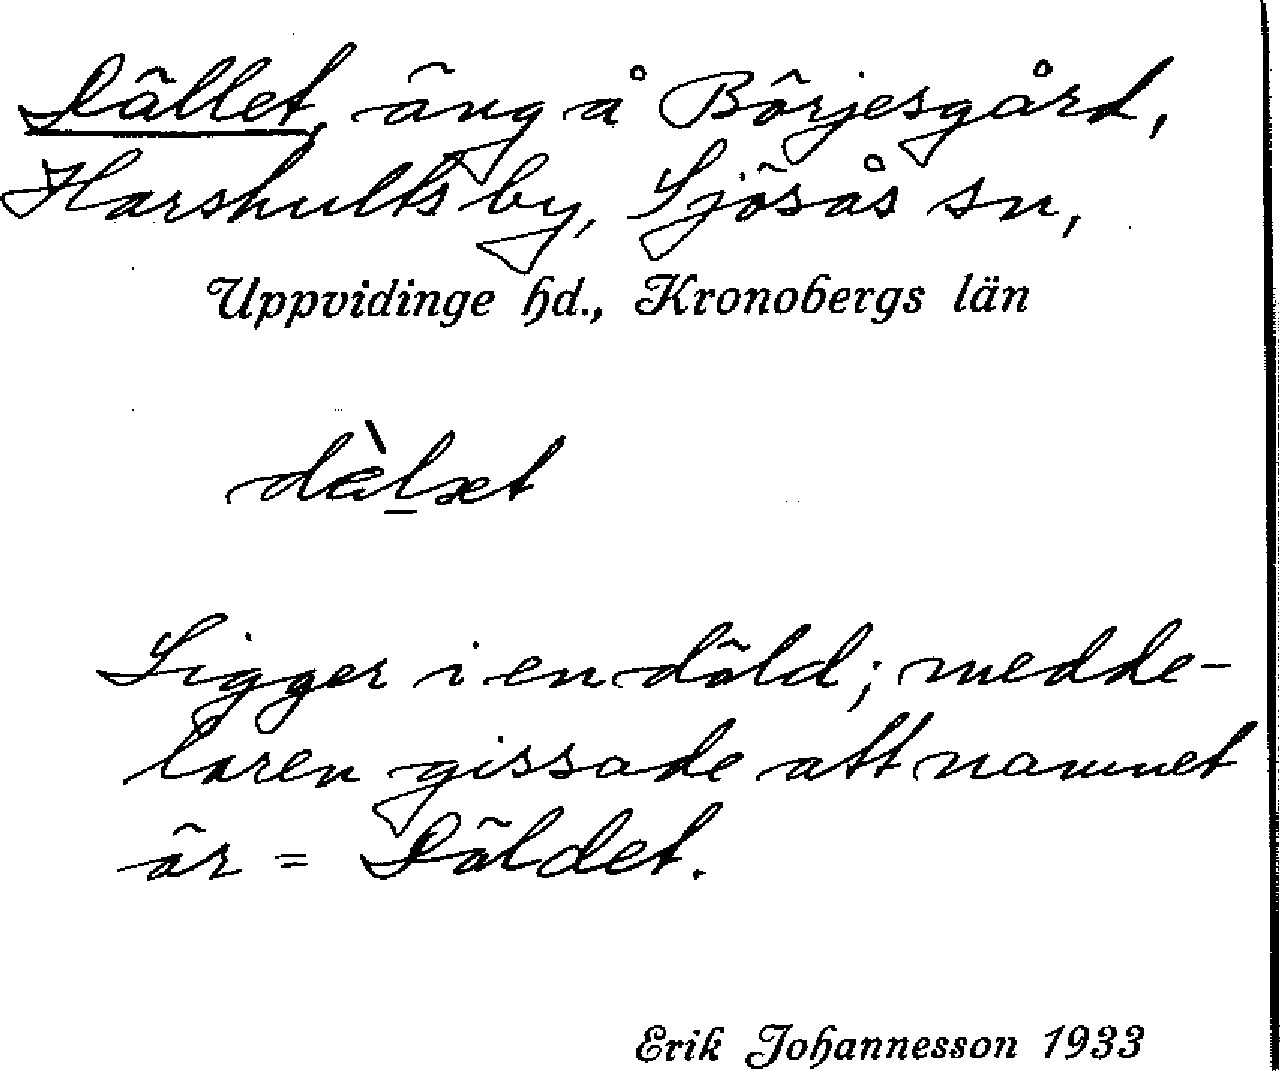 Dället, äng å Börjesgård,
Harshults by, Sjösås sn,
Uppvidinge hd., Kronobergs län
dæ̀lxet
Ligger i en däld; medde-
laren gissade att namnet
är = Däldet.
Erik Johannesson 1933